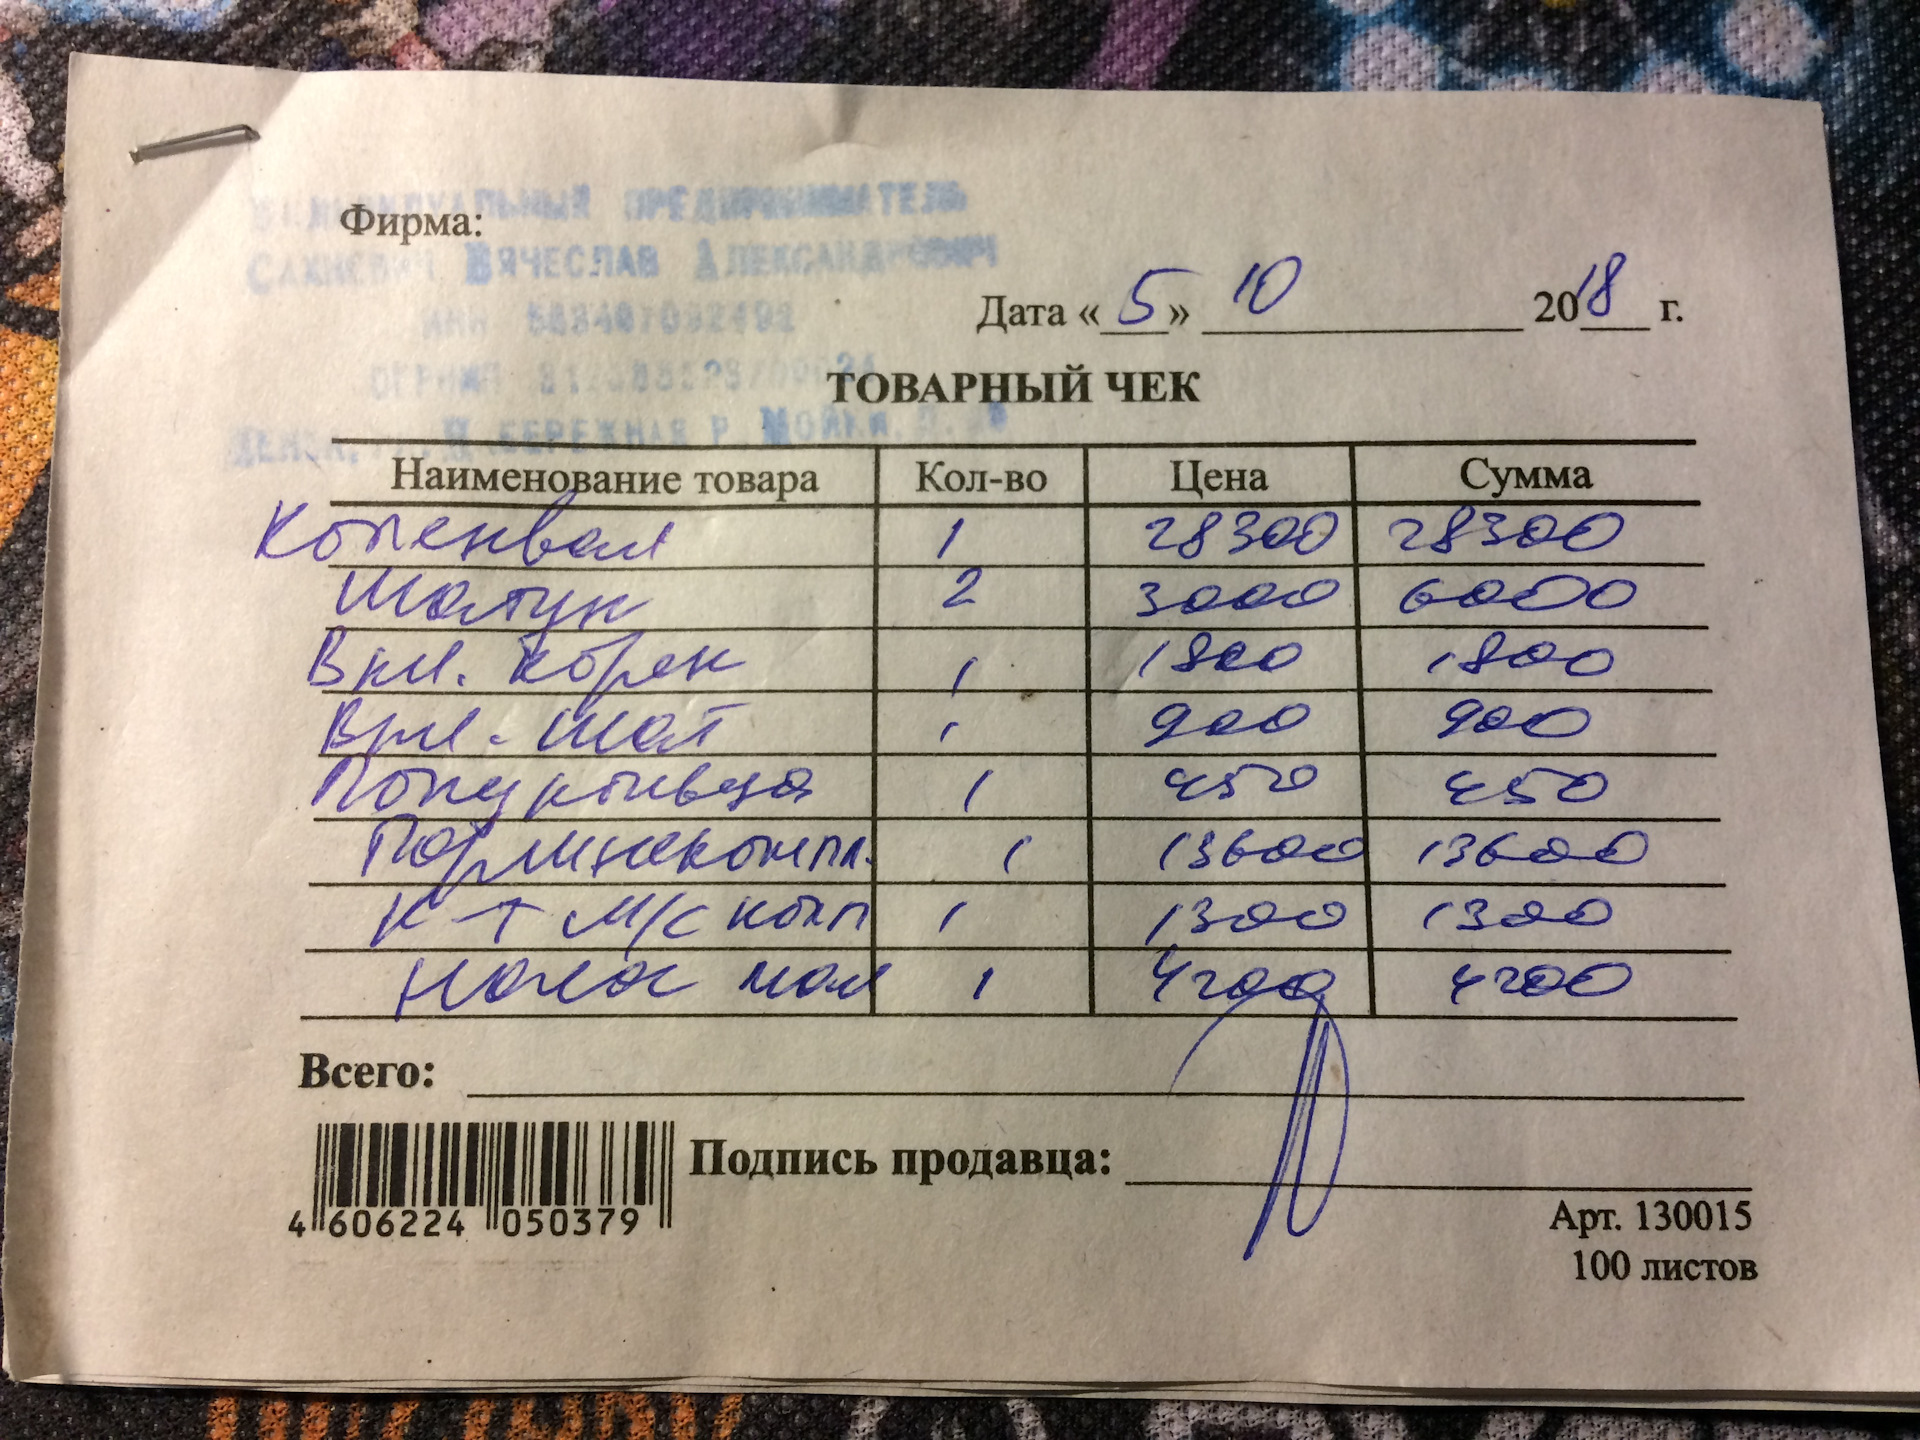 ИНДИВИДУАЛЬНЫЙ ПРЕДПРИНИМАТЕЛЬ
Фирма:
ВЯЧЕСЛАВ АЛЕКСАНДРОВИЧ
ИНН
Дата «5» 10 2018 г.
ТОВАРНЫЙ ЧЕК
НАБЕРЕЖНАЯ Р. МОЙКИ
Наименование товара Кол-во Цена Сумма
Коленвал 1 28300 28300
Шатун 2 3000 6000
Вкл. корен 1 1800 1800
Вкл. шат 1 900 900
Полукольца 1 450 450
Поршнекомпл. 1 13600 13600
К-т м/с колп 1 1300 1300
Насос мол 1 4200 4200
Всего:
Подпись продавца:
4 606224 050379
Арт. 130015
100 листов